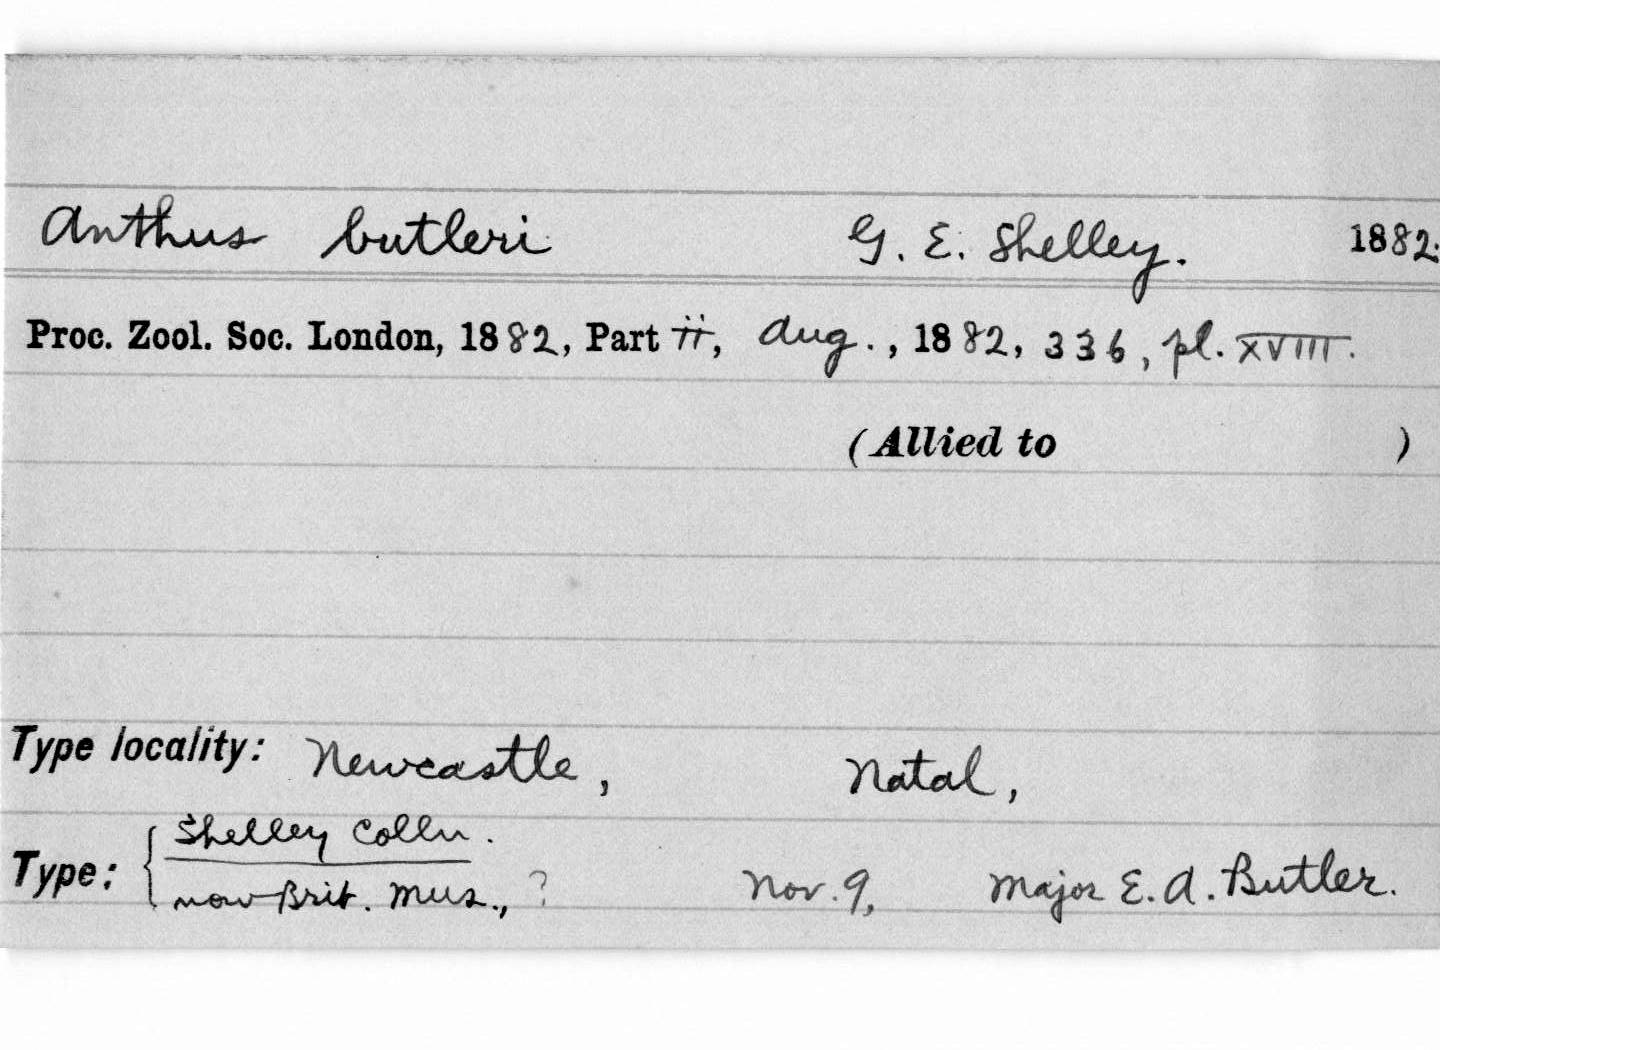 Anthus butleri G. E. Shelley. 1882.
Proc. Zool. Soc. London, 1882, Part ii, Aug., 1882, 336, pl. XVIII.
(Allied to )
Type locality: Newcastle, Natal,
Shelley Colln.
Type: now Brit. Mus., ? Nov. 9, Major E. A. Butler.